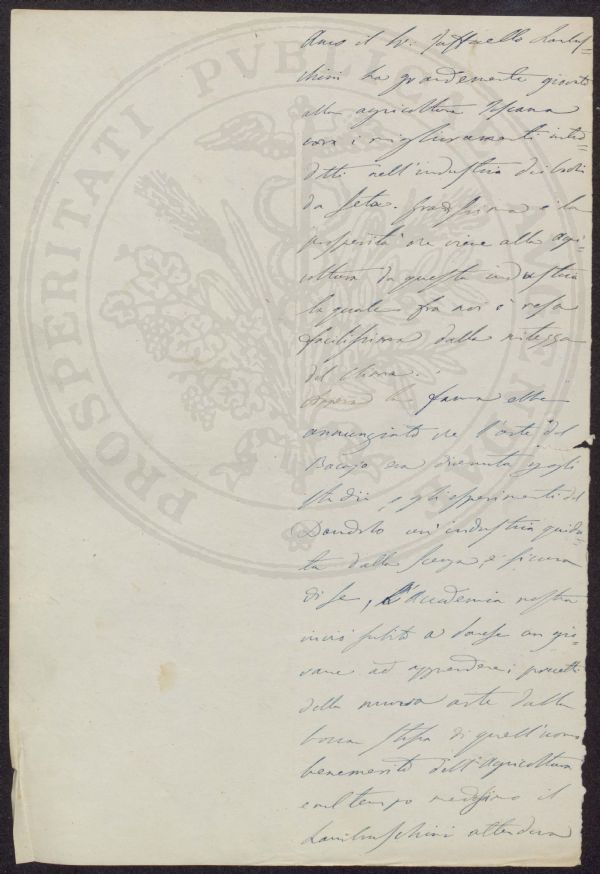 PROSPERITATI PVBLICAE AVGENDAE
il Sr. Raffaello Lambru-
schini ha grandemente giovato
alla agricoltura Toscana
con i miglioramenti intro-
dotti nell'industria dei bachi
da seta. Grandissima è la
prosperità che viene alla agri-
coltura da questa industria
la quale fra noi è resa
facilissima dalla mitezza
del clima.
fama ebbe
annunziato che l'arte del
Bacajo era divenuta per gli
studii, e gli esperimenti del
Dandolo un'industria guida-
ta dalla scienza, e sicura
di se, L'Accademia nostra
inviò subito a un gio-
vane ad apprendere i precetti
della nuova arte dalla
bocca stessa di quell'uomo
benemerito dell'Agricoltura
e nel tempo medesimo il
Lambruschini attendeva